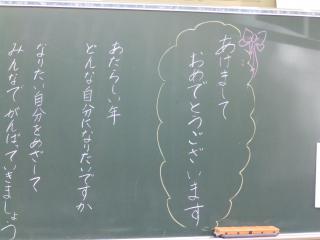 あけまして
おめでとうございます
あたらしい年
どんな自分になりたいですか
なりたい自分をめざして
みんなでがんばっていきましょう